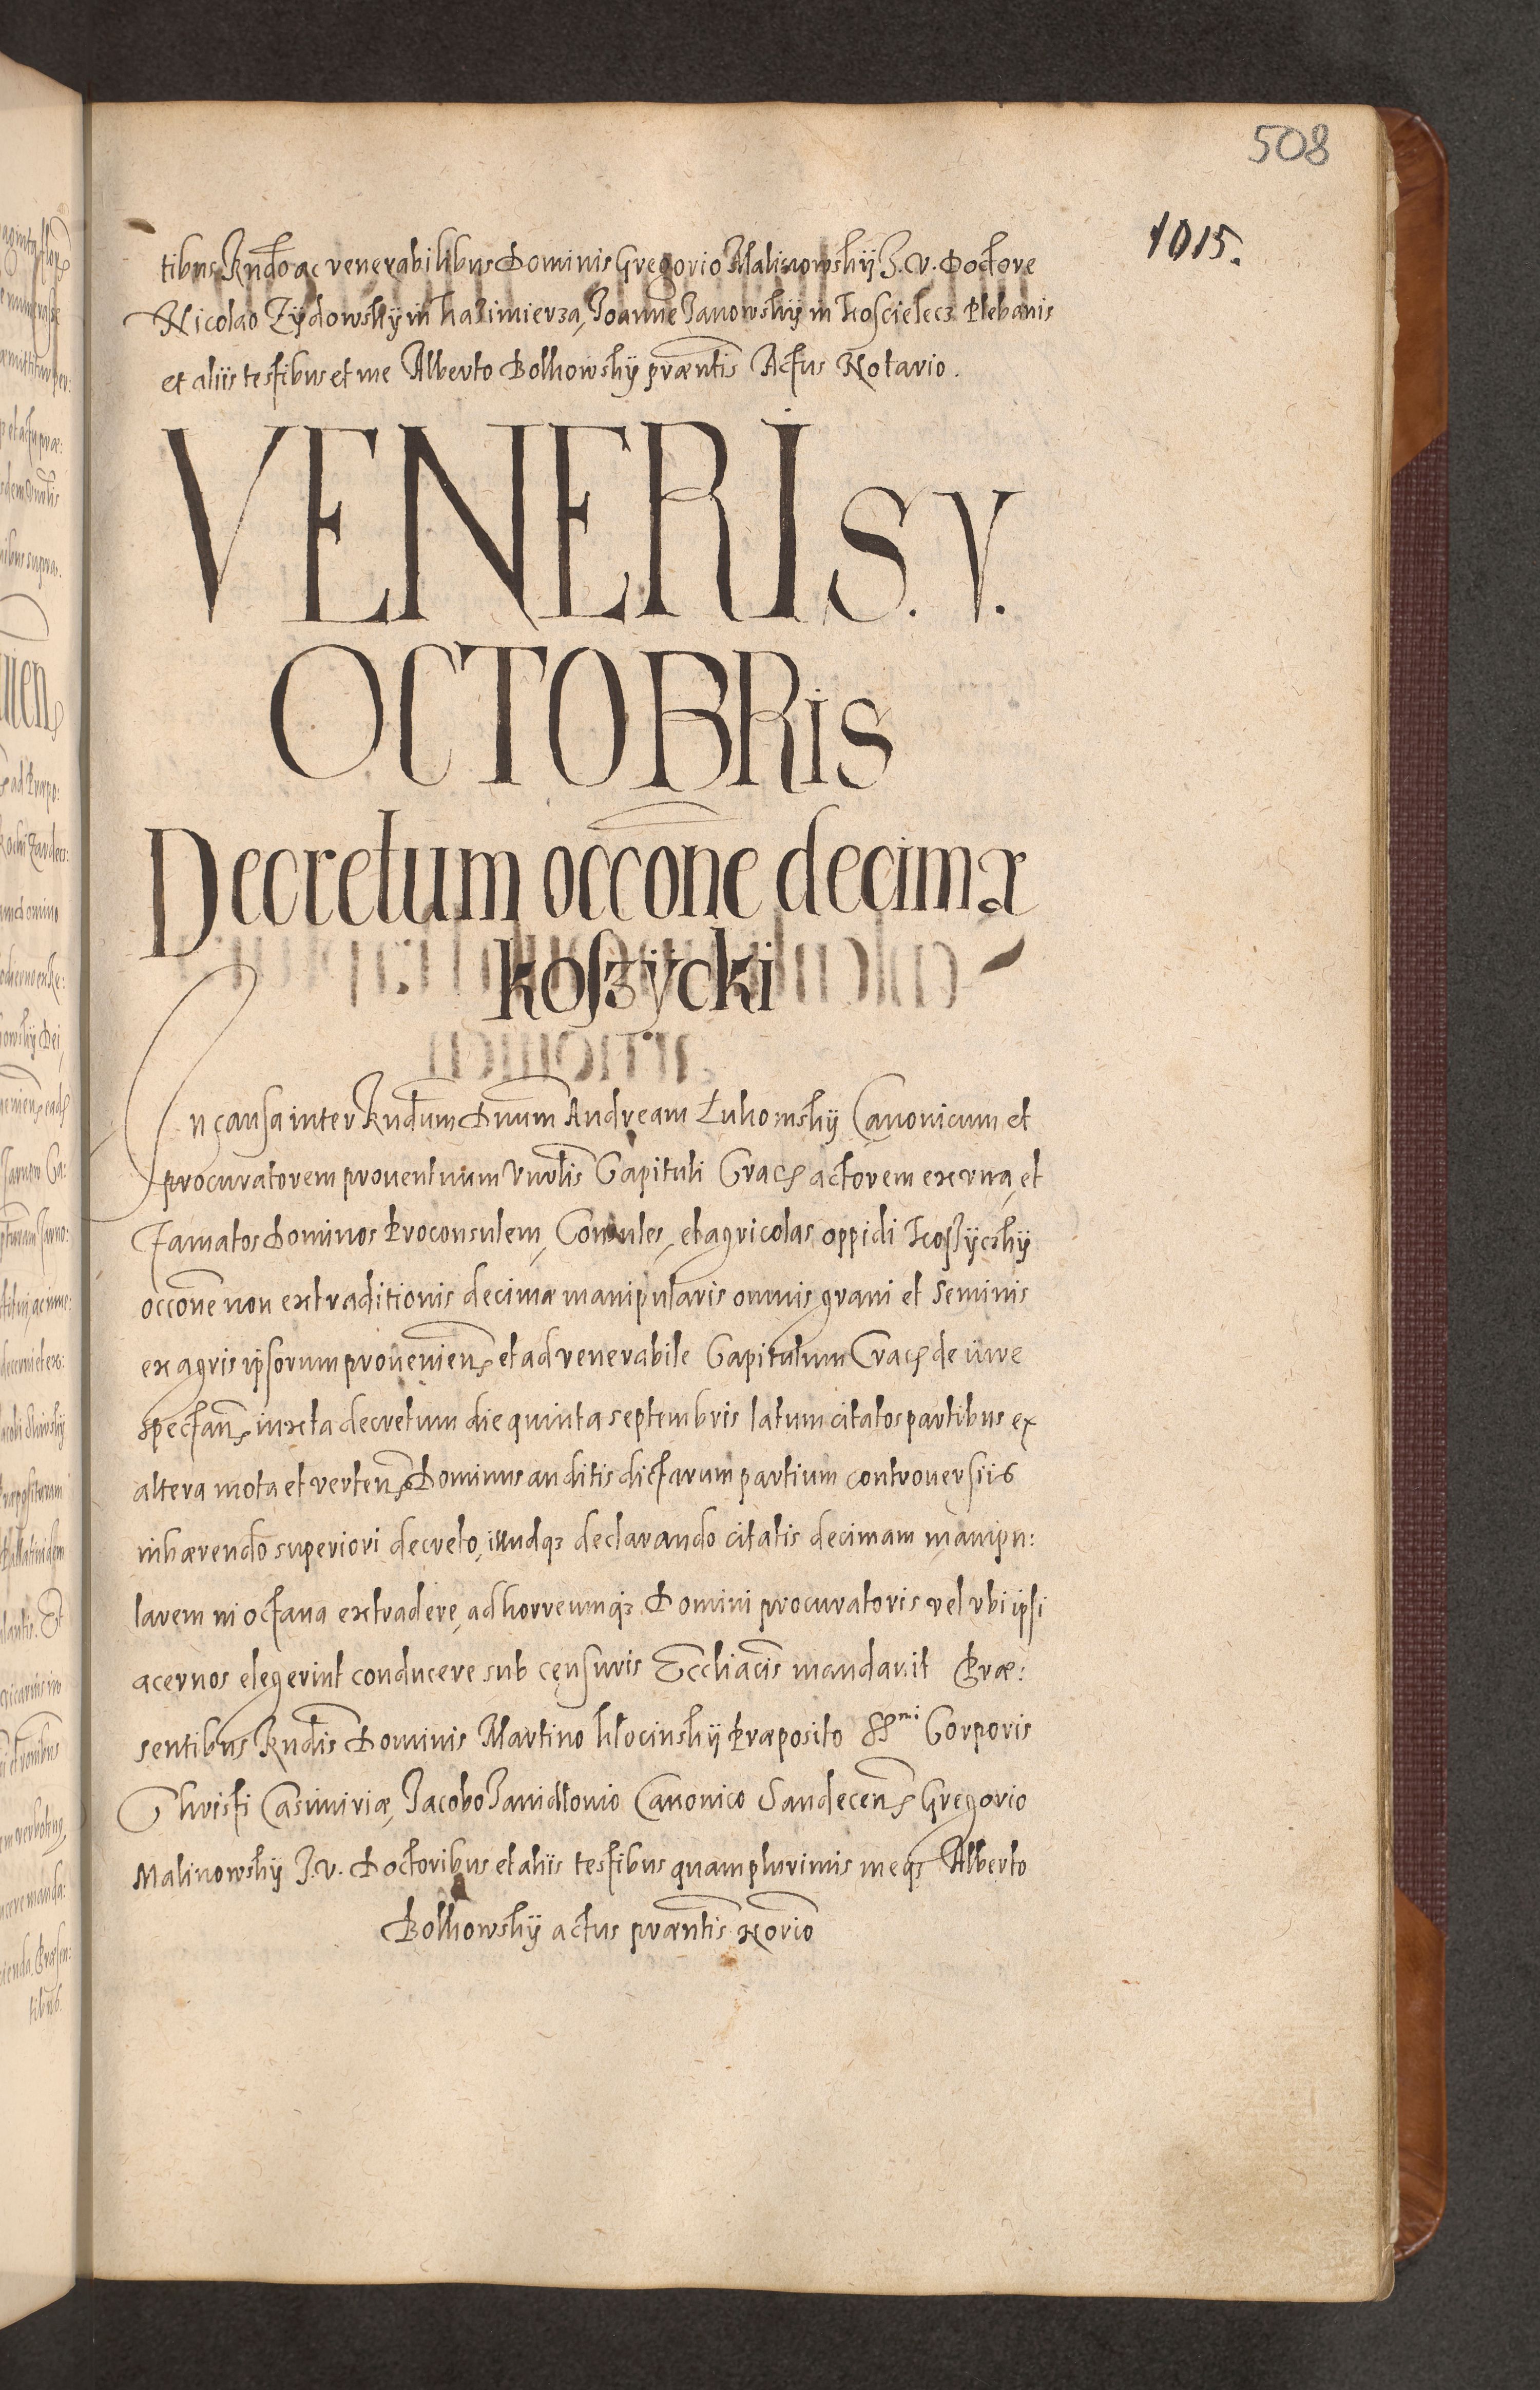 508
1015.
tibus Rndo ac venerabilibus Dominis Gregorio Malinowskÿ J. V. Doctore
Nicolao Zÿdowskÿ in Kazimierza, Joanne Janowskÿ in Koscielecz Plebanis
et aliis testibus et me Alberto Bolkowskÿ præntis Actus Notario.
VENERIS. V.
OCTOBRIS
Decretum occone decimæ
koszÿcki
In causa inter Rndum Dnum Andream Łukomskÿ Canonicum et
procuratorem prouentuum Vnrlis Capituli Crac actorem ex vna, et
Famatos Dominos Proconsulem, Consules, et agricolas oppidi Koszÿczkÿ
occone non extraditionis decimæ manipularis omnis grani et seminis
ex agris ipsorum prouenien et ad venerabile Capitulum Crac de iure
spectan iuxta decretum die quinta septembris latum citatos partibus ex
altera mota et verten Dominus auditis dictarum partium controuersiis
inhærendo superiori decreto, illudq3 declarando citatis decimam manipu:
larem in octaua extradere, ad horreumq3 Domini procuratoris vel vbi ipsi
aceruos elegerint conducere sub censuris Eccliacis mandauit Præ:
sentibus Rndis Dominis Martino Kłocinskÿ Præposito SSmi Corporis
Christi Casimiriæ, Jacobo Janidłouio Canonico Sandecen Gregorio
Malinowskÿ J. V. Doctoribus et aliis testibus quamplurimis meq3 Alberto
Bolkowskÿ actus præntis Norio